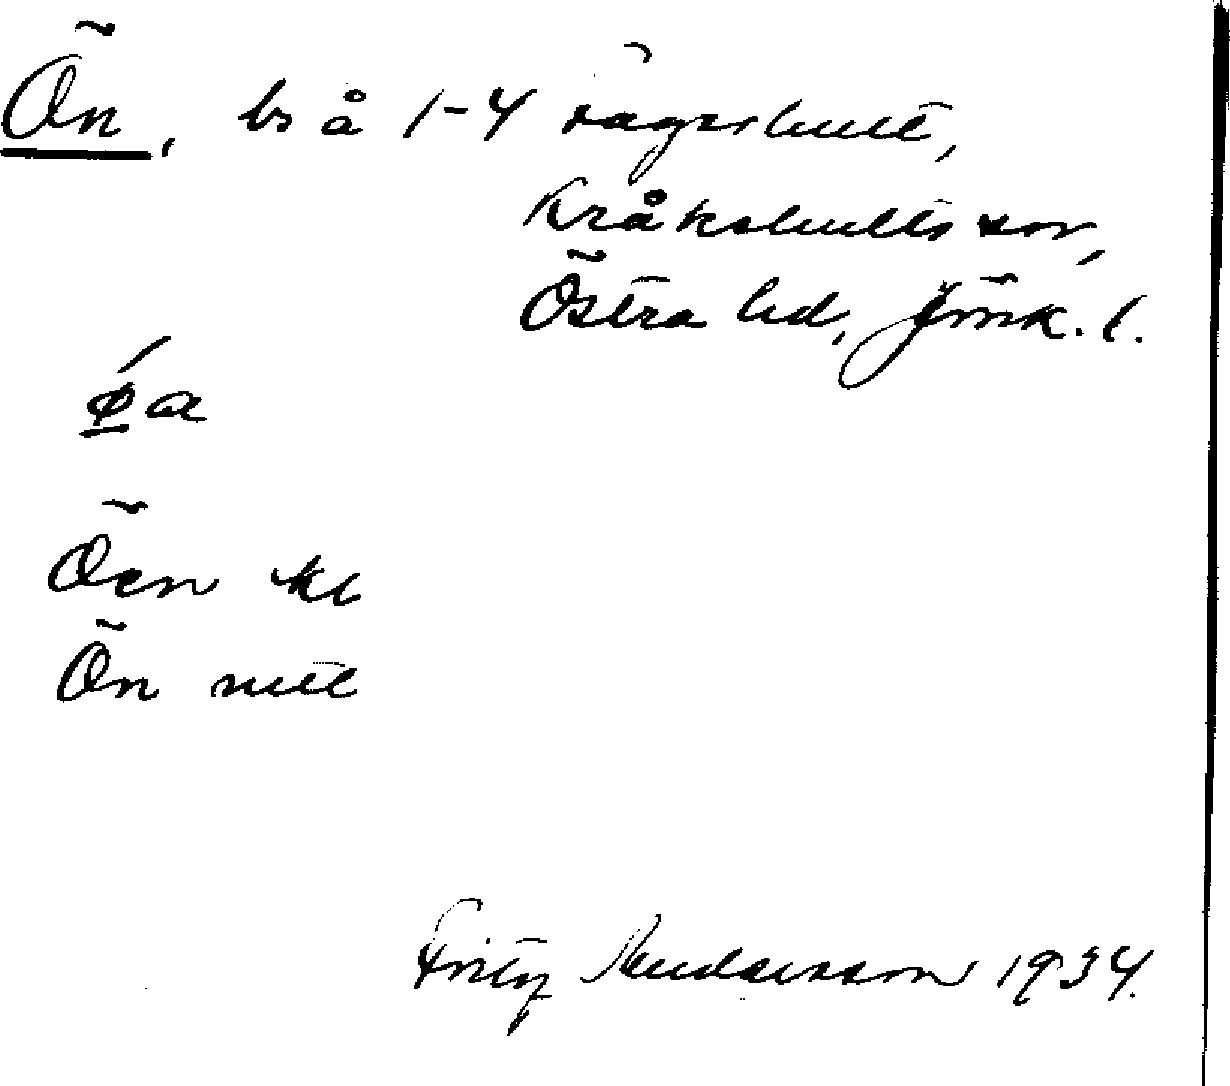 Ön, bs å 1-4 Fagerhult,
Kråkshults sn,
Östra hd, Jönk. l.
ǿa
Öen kl
Ön mtl
Fritz Andersson 1934.